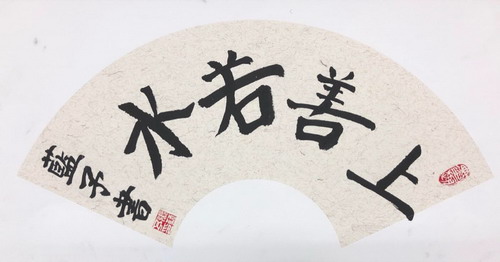 上善若水
藍子書